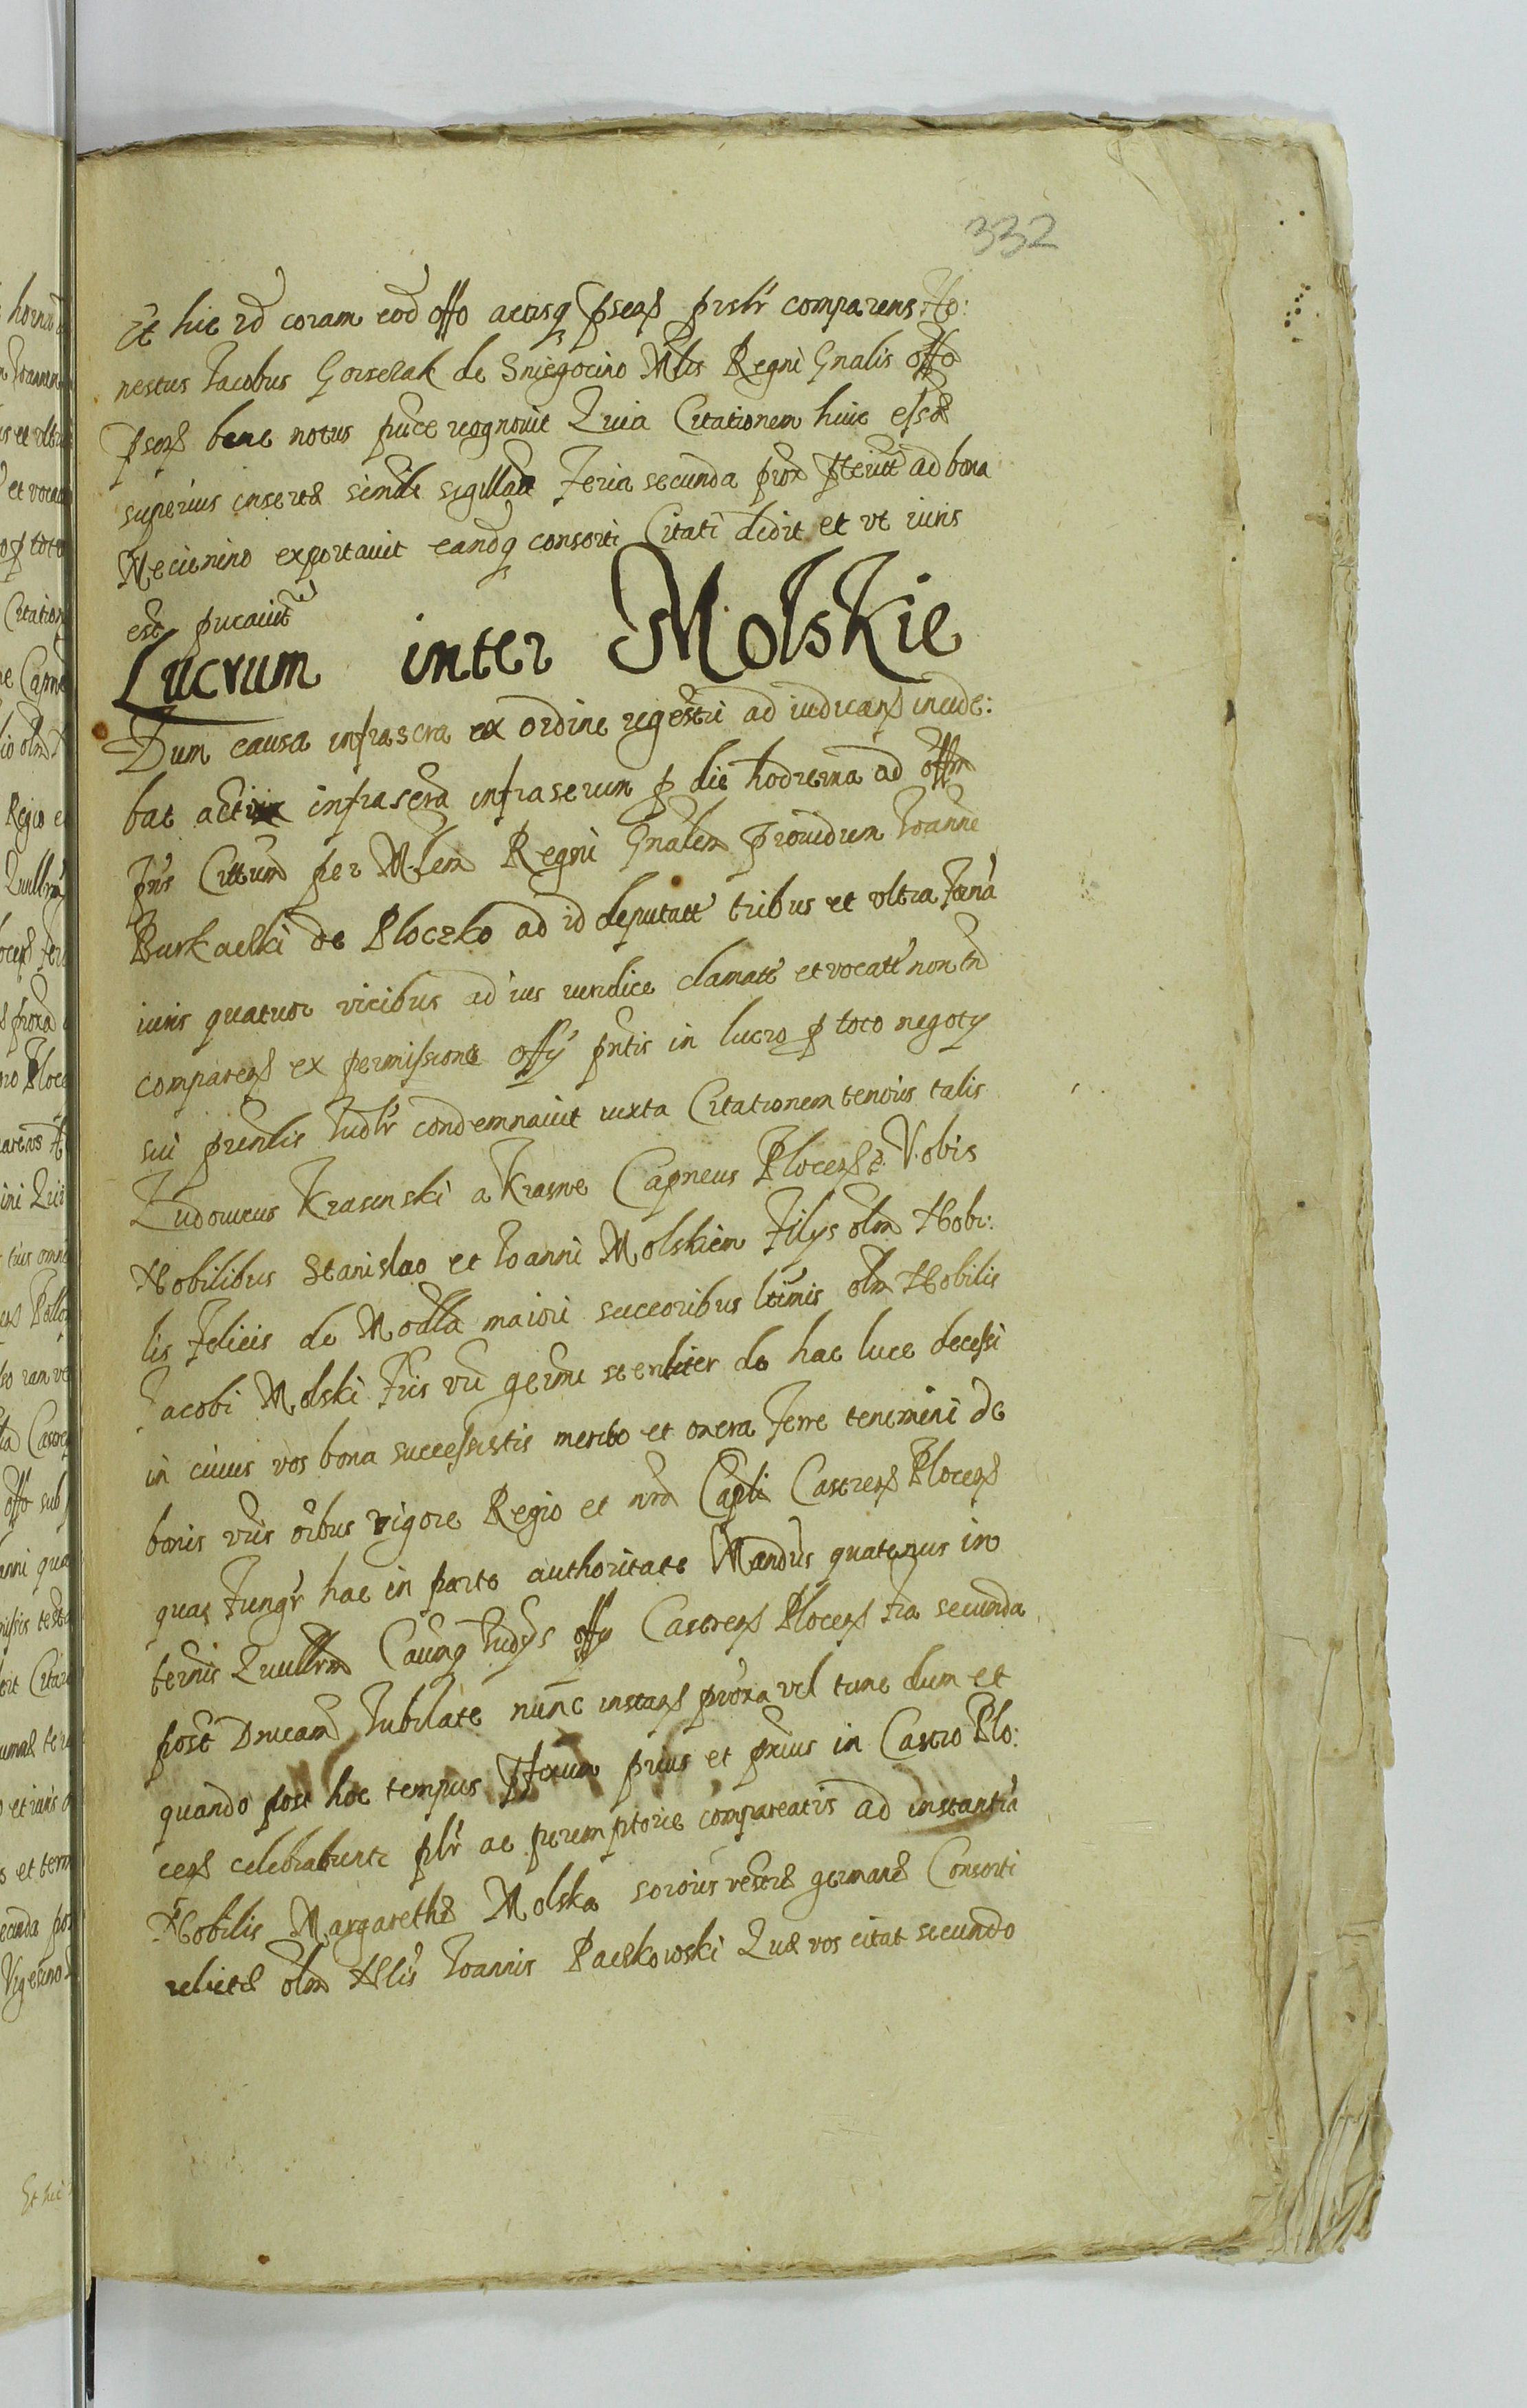 332
Et hic id coram eod offo actisq pseñs prslr comparens Ho:
nestus Jacobus Gorselak de Sniegocino Mlis Regni Gnalis offo
pseñs bene notus puce recognovit Quia Citationem huic
superius insertæ simile sigillatu Feria secunda prox pterit ad bona
Niecienino exportavit eandq consorti Citati dedit et ut iuris
est pucavit
Lucrum inter Molskie
Dum causa infrascra ex ordine regestri ad iudicand incide:
bat infrascra infrascrum p die hodierna ad offm
pns Cittum per Mlem Regni Gnalem providum Joanne
de Bloczko ad id deputatt tribus et ultra Forma
iuris quatuor vicibus ad ius iuridice clamatt et vocatt non tn
comparens ex permissione offy pntis in lucro p toto negoty
sui condemnavit iuxta Citationem tenoris talis
Ludovicus Krasinski a Krasne Capneus Plocens Vobis
Nobilibus Stanislao et Joanni Molskiem Filys olm Nobi:
lis Felicis de Modla maiori succoribus ltimis olm Nobilis
Jacobi Molski Fris vri germi steriliter de hac luce decessi
in cuius vos bona successistis merito et onera Ferre tenemini de
bonis vris oibus vigore Regio et nro Capli Castrens Plocens
qua Fungr hac in parte authoritate Mandus quatenus in
termis Querellrm Caumq Judys offy Castrens Plocens Fria secunda
post Dnicam Jubilate nunc instans proxa vel tunc dum et
quando post hoc tempus prius et prius in Castro Plo:
cens celebrabuntr plr ac peremptorie compareatis ad instantia
Nobilis Margarethæ Molska sororis vestræ germanæ Consorti
relictæ olm Nlis Joannis Paczkowski Quæ vos citat secundo